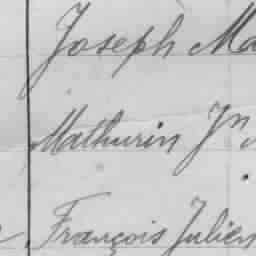 Joseph Ma
Mathurin Jn
François Julien